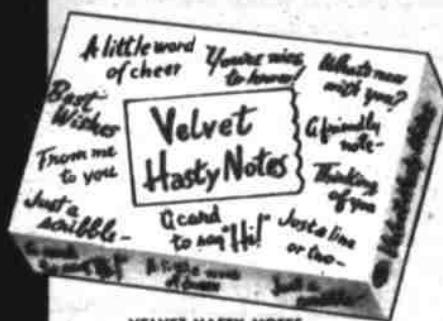 A little word
of cheer
You're nice
to know!
What's new
with you?
Best
Wishes
Velvet
Hasty Notes
A friendly
note-
From me
to you
Thinking
of you
Just a
scribble-
A card
to say "Hi!"
Just a line
or two-
Velvet Hasty Notes
A card
to say "Hi!"
A little word
of cheer
Just a
scribble-
VELVET HASTY NOTES